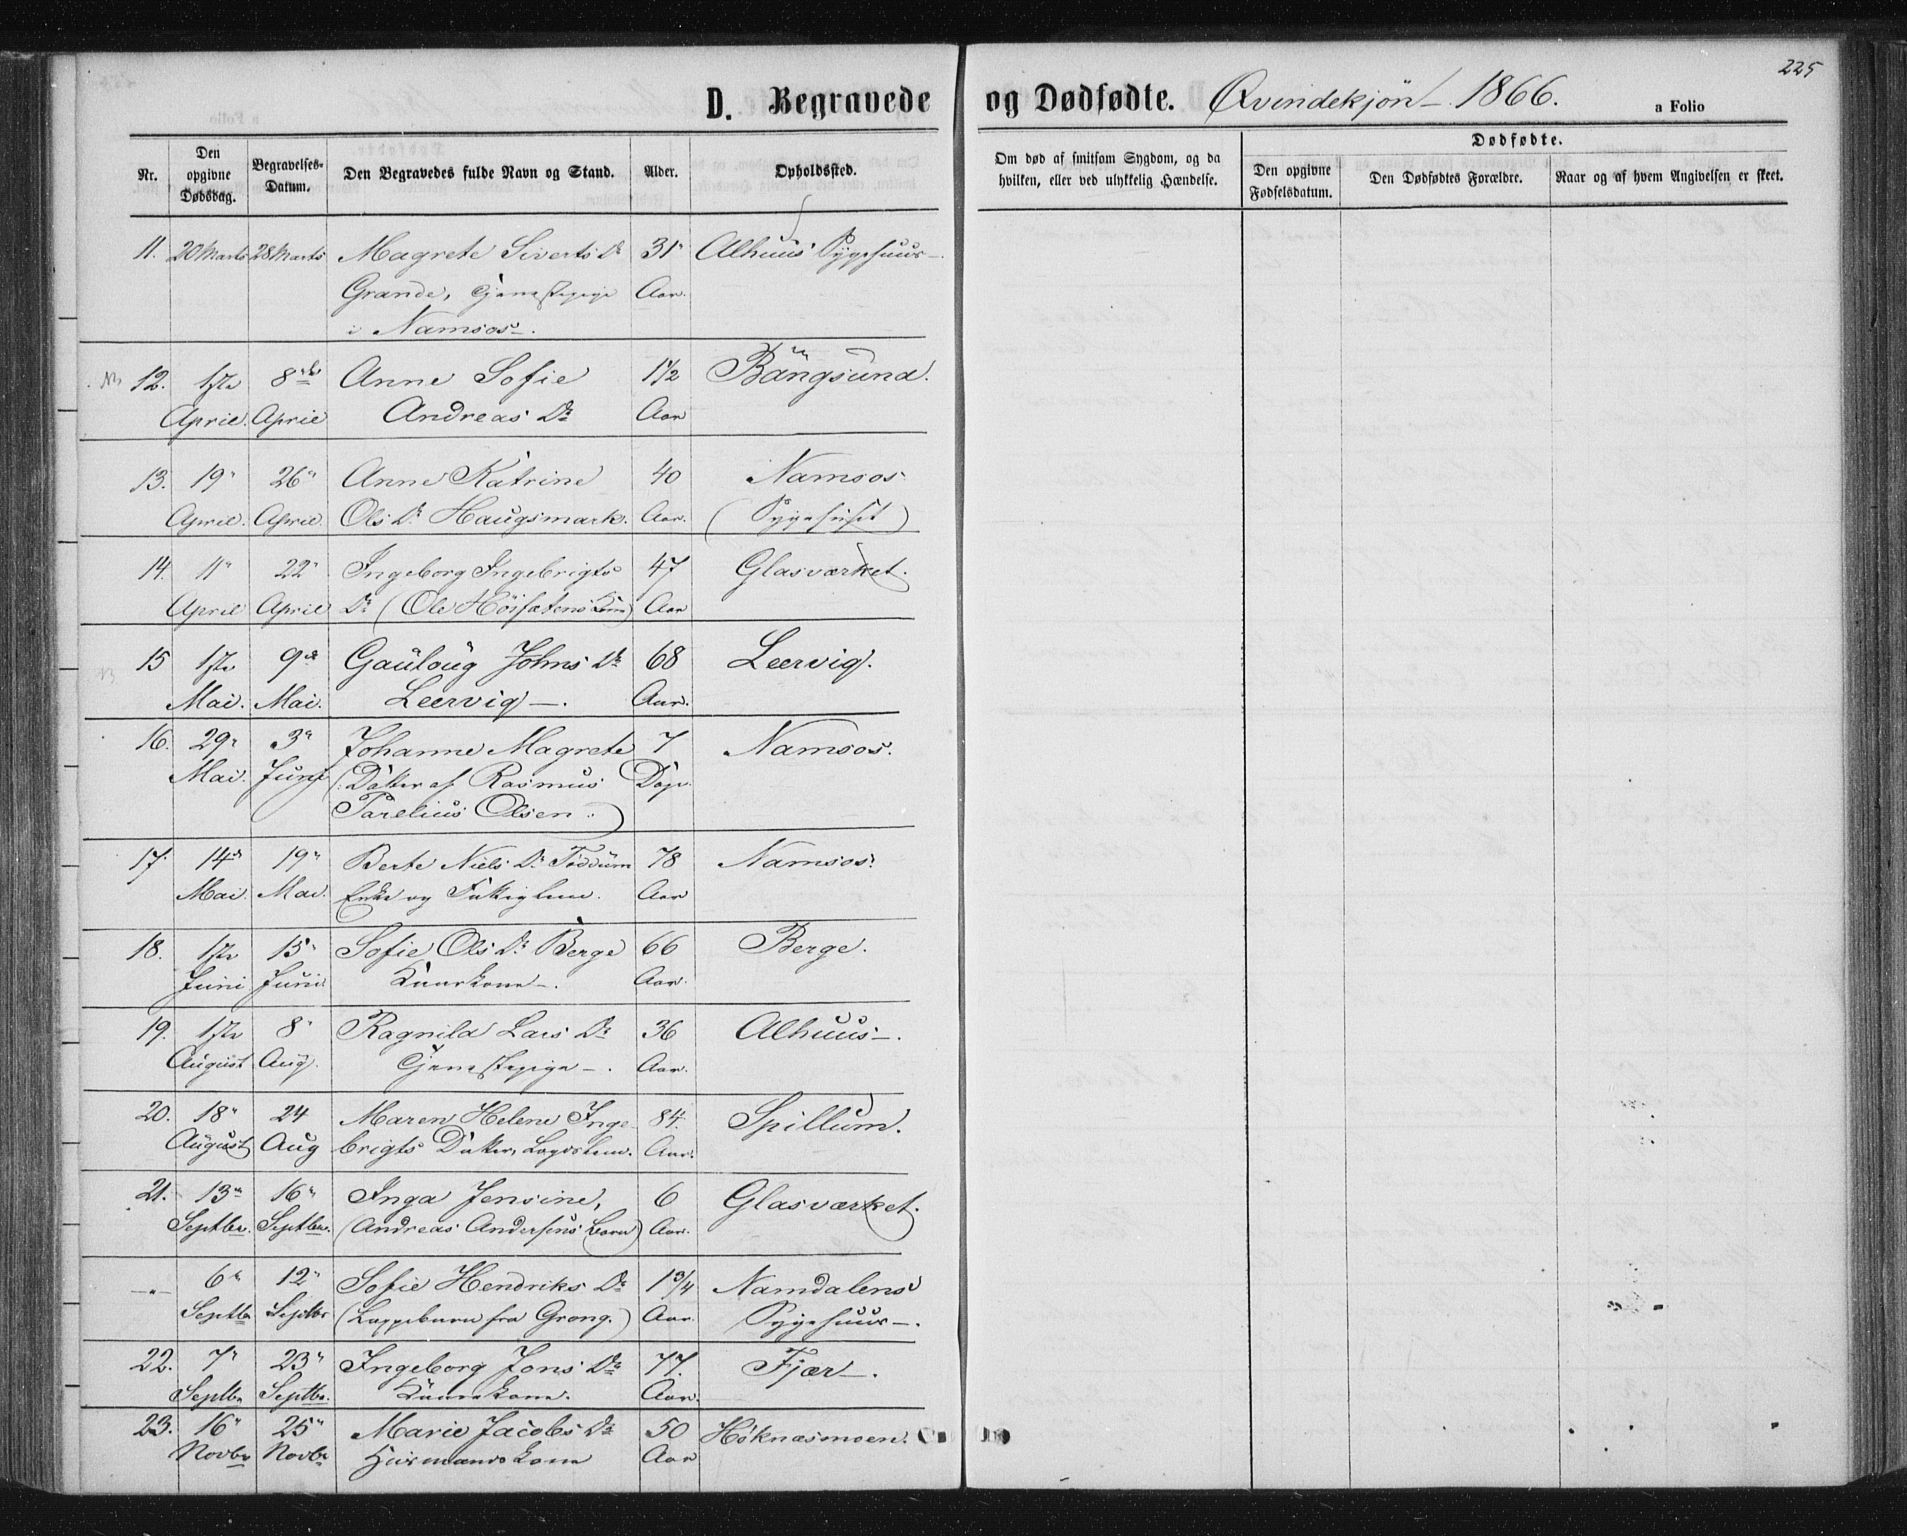 225
D. Begravede og Dødfødte. Qvindekjøn – 1866. a Folio
Nr.
Den opgivne Dødsdag.
Begravelses-Datum.
Den Begravedes fulde Navn og Stand.
Alder.
Opholdssted.
Om død af smitsom Sygdom, og da hvilken, eller ved ulykkelig Hændelse.
Dødfødte.
Den opgivne Fødselsdatum.
Den Dødfødtes Forældre.
Naar og af hvem Angivelsen er skeet.
11. 20 Marts 28 Marts Magrete Siverts Dr 31 Alhuus Sygehuus –
Grande, Tjenestepige Aar.
i Namsos –.
12. 1ste 8de Anne Sofie 1½ Bängsund.
April. April Andreas Dr Aar
13. 19" 26" Anne Katrine 40 Namsos
April. April. Ols Dr Haugsmark. Aar. (Sygehuset)
14. 11" 22" Ingeborg Ingebrigts 47 Glasværket.
April April Dr (Ole Kone) Aar
15 1ste 9de Johns Dr 68 Leervig.
Mai. Mai. Leervig –. Aar.
16. 29" 3" Johanne Magrete 7 Namsos.
Mai. Juni (Datter af Rasmus Dage
Parelius Olsen.)
17. 14de 19" Berte Niels Dr 78 Namsos.
Mai. Mai. Enke og Fattiglem. Aar
18. 1ste 15" Sofie Ols Dr Berge 66 Berge.
Juni Juni Kaarkone –. Aar.
19. 1ste 8" Ragnild Lars Dr 36 Alhuus –.
August Aug. Tjenestepige –. Aar.
20. 18" 24 Maren Helene Inge 84. Spillum.
August Aug brigts Datter, Lægdslem. Aar.
21. 13" 16" Inga Jensine, 6 Glasværket.
Septbr. Septbr. (Andreas Andersens Barn) Aar.
–"– 6" 12" Sofie Hendriks Dr 1¾ Namdalens
Septbr Septbr (Lappebarn fra Grong.) Aar. Sygehuus –.
22. 7" 23" Ingeborg Jons Dr 77. Fjær –.
Septbr Septbr. Kaarekone. Aar.
23. 16" 25" Marie Jacobs Dr 50 Høknæsmoen.
Novbr Novbr Huusmandskone Aar